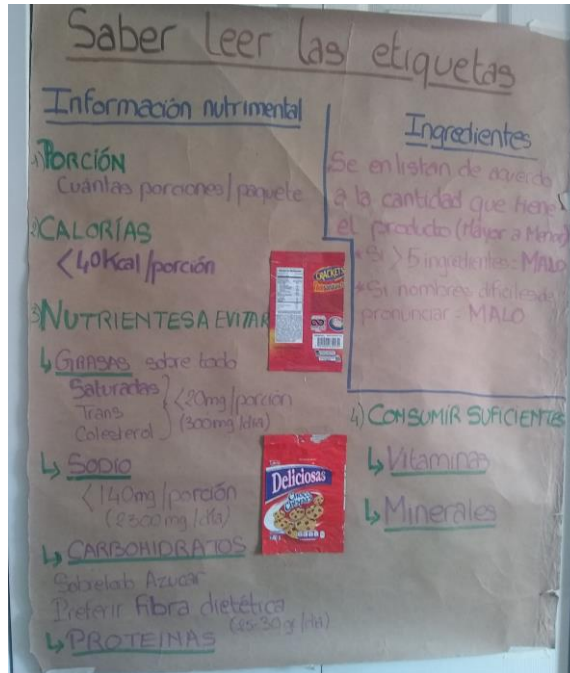 Saber leer las etiquetas
Información nutrimental
1) PORCIÓN
Cuántas porciones/paquete
2) CALORÍAS
<40Kcal/porción
3) NUTRIENTES A EVITAR
↳ GRASAS sobre todo
Saturadas
Trans
Colesterol
<20mg/porción
(300mg/día)
↳ SODIO
<140mg/porción
(2300mg/día)
↳ CARBOHIDRATOS
Azucar
Preferir Fibra dietética
(25-30gr/día)
↳ PROTEINAS
Ingredientes
Se enlistan de acuerdo
a la cantidad que tiene
el producto (Mayor a Menor)
* Si >5 ingredientes = MALO
* Si nombres dificiles de
pronunciar = MALO
4) CONSUMIR SUFICIENTES
↳ Vitaminas
↳ Minerales
CRACKETS
Deliciosas